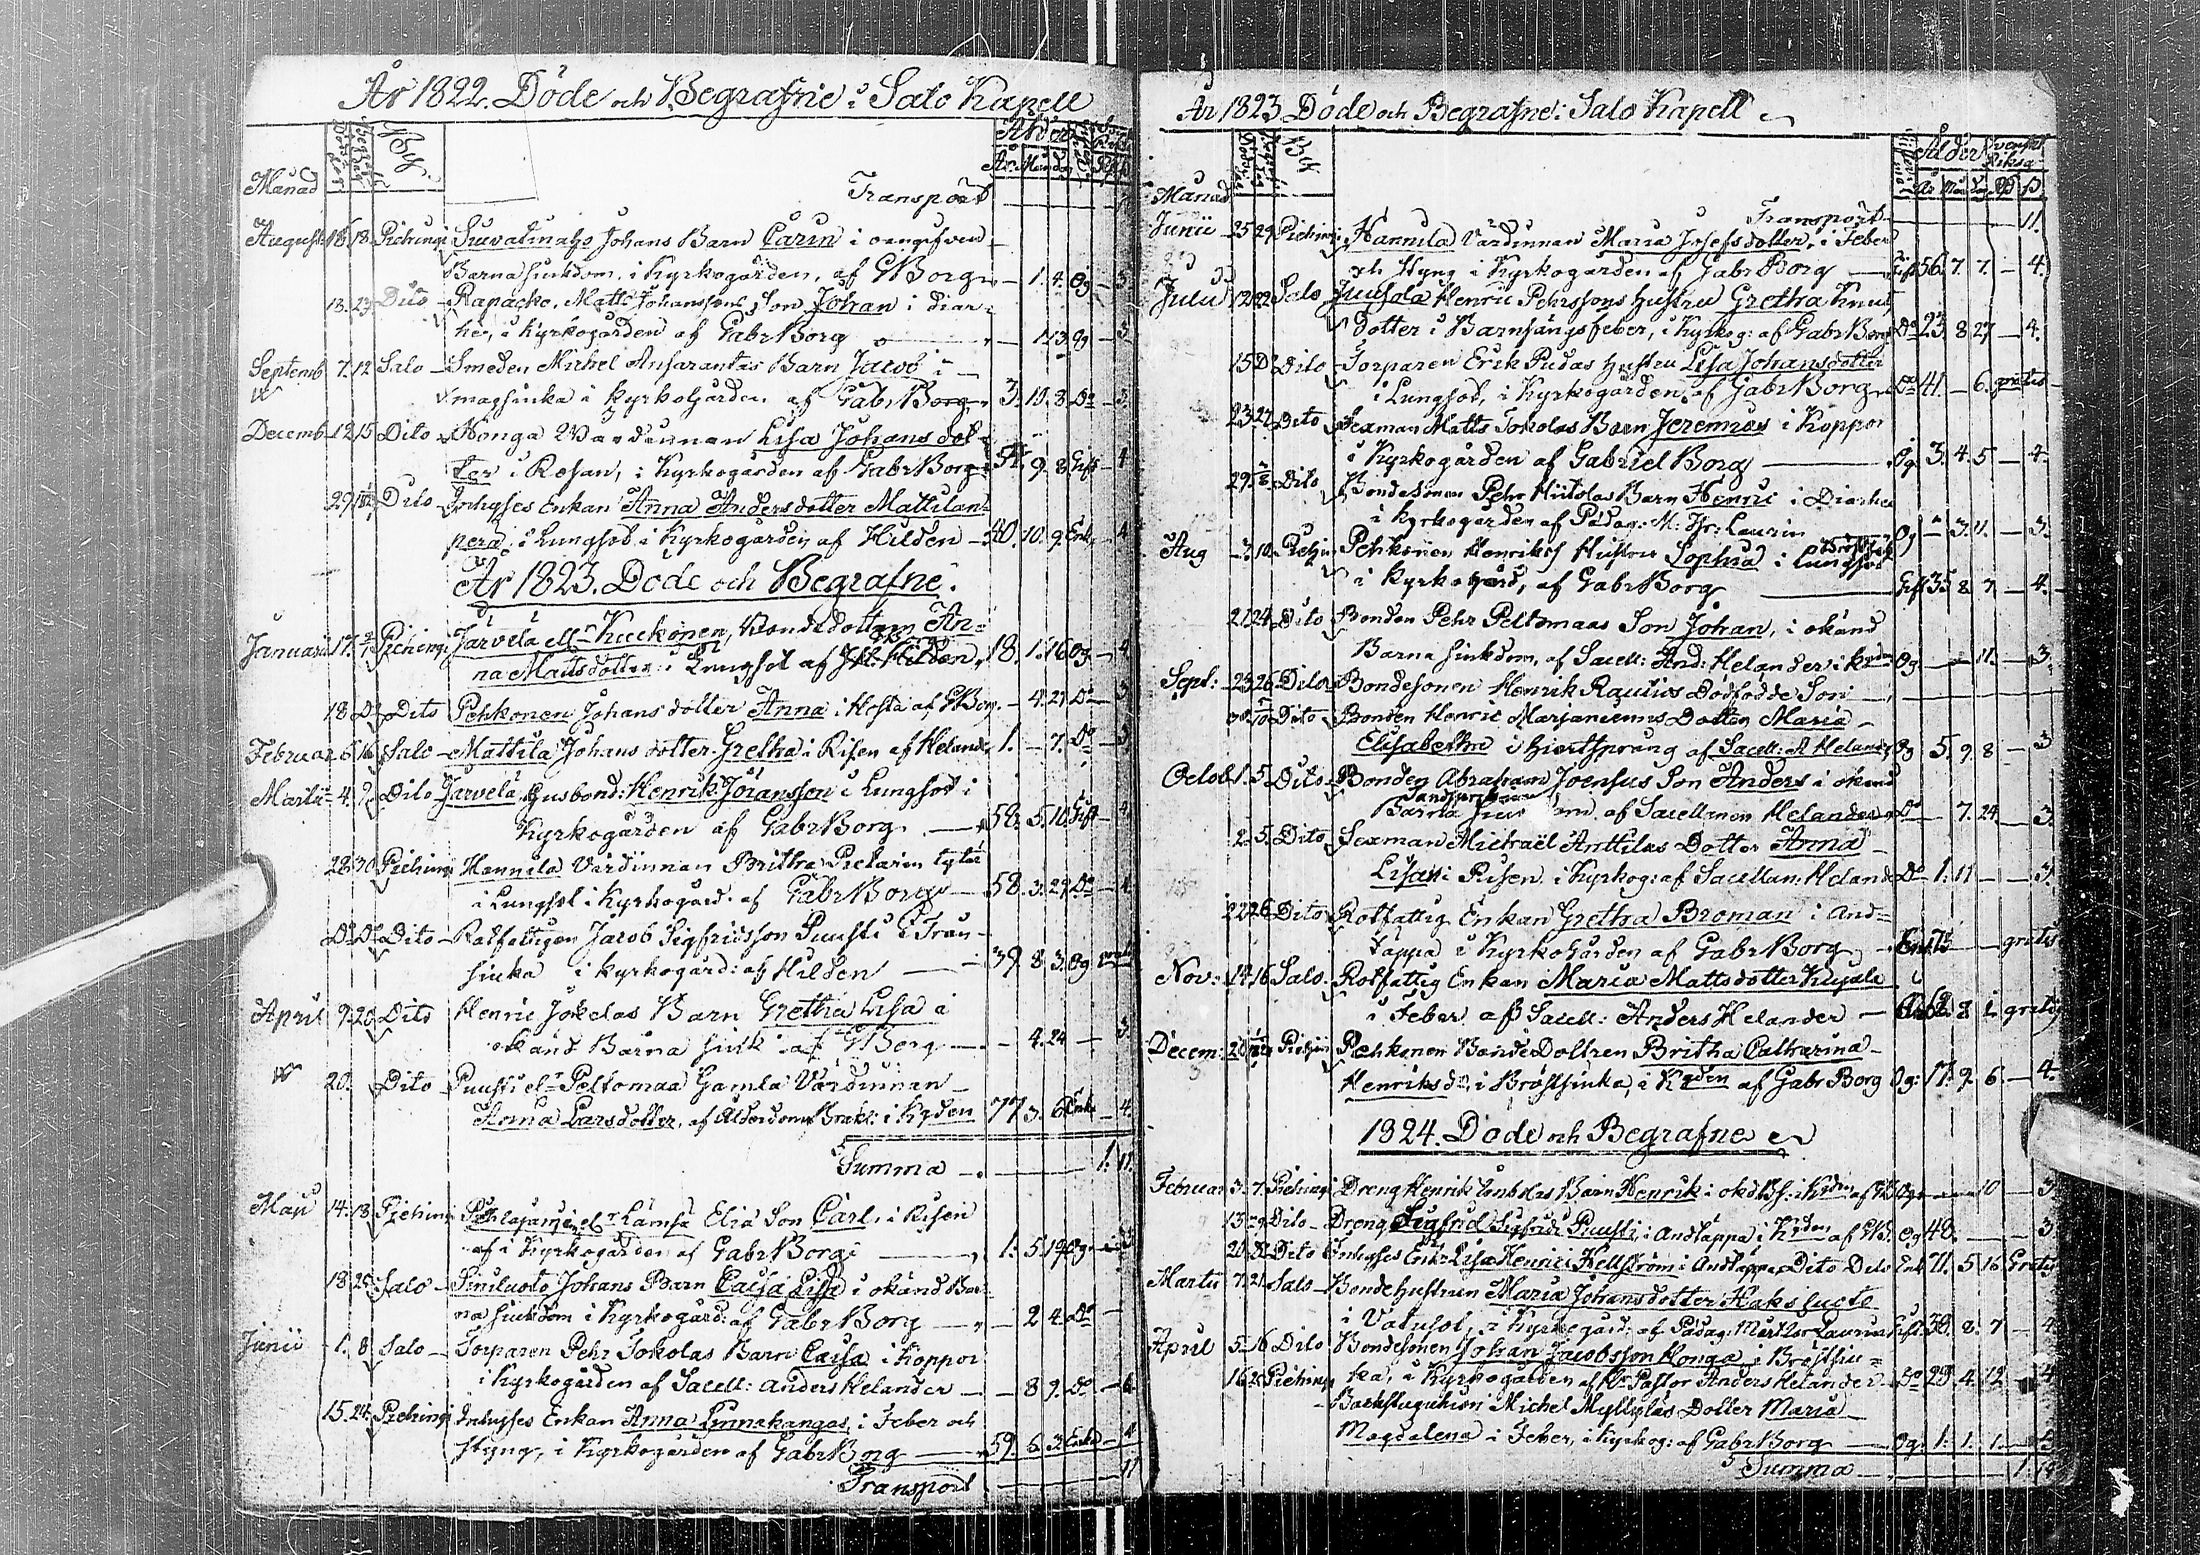 År 1822. Döde och Begrafne i Salo Kapell
Månad By Ålder
År Månad Dag
Transport
August 18 Pichingi Johans Barn Carin i oangifven
Barna siukdom, i Kyrkogården, af GBorg 1. 4. Og 3
18. 23 Dito Rapacko, Matts Johanssons Son Johan i diar-
hé, i Kyrkogården af Gabr Borg Og 3
Septemb 7. 12 Salo Smeden Michel Ansarantas Barn Jacob i
magsiuka i Kyrkogården af Gabr Borg 3. 10. 8 Do 3.
Decemb 12 15 Dito Honga Värdinnan Lisa Johansdot-
ter i Rosan, i Kyrkogården af Gabr Borg 9. 8 Gift 4
29 Dito Inhyses Enkan Anna Andersdotter Mattilan-
perä, i Lungsot i Kyrkogården af Hildén 40. 10. 9. Enk. 4
År 1823. Döde och Begrafne.
Januarii 17. Pichingi Jarvela el:r Kuckonen, Bondedottern An-
na Mattsdotter i Lungsot af Hildén 18. 1. 16 Og 4
18 Do Dito Pehkonen Johans dotter Anna i Hosta af GBorg 4. 27 Do 3
Februar 6. 16 Salo Mattila Johans dotter Gretha i Risen af Heland 1. 7. Do 3
Martii 4. 9 Dito Jarvelä Husbond: Henrik Johansson i Lungsot i
Kyrkogården af Gabr Borg 58. 5. 10. Gift 4
28 30 Pichingi Hannila Värdinnan Britha Pietarin tytär
i Lungsot i Kyrkogård: af Gabr Borg 58. 3. 29. Do 4
Do Do Dito Rotfattigen Jacob Sigfridsson Puusti i Trån-
siuka i Kyrkogård: af Hildén 39 8 3. Og gratis
April 9. 20 Dito Henric Jokelas Barn Gretha Lisa i
okänd Barna siuk: af GBorg 4. 24 3
20. Dito Puusti el:r Peltomaa Gamla Värdinnan
Anna Larsdotter, af Ålderdoms Bräckl: i Kyden 77 3. 6 Enk. 4
Summa 1. 11.
Maji 14. 18 Pichingi el:r Lämsä Elia Son Carl, i Risen
i Kyrkogården af Gabr Borg 1. 5. 19 Og 3
18 25 Salo Siniluoto Johans Barn Caisa Lisa i okänd Bar-
na siukdom i Kyrkogård: af Gabr Borg 2 4 Do
Junii 1. 8 Salo Torparen Pehr Tokolas Barn Caisa i Koppor
i Kyrkogården af Sacell: Anders Helander 8 9. Do
15. 24 Pichingi Inhyses Enkan Anna Linnakangas, i Feber och
styng, i Kyrkogården af Gabr Borg 59. 6. 3. Enka 4
Transport 11
År 1823 Döde och Begrafne i Salo Kapell
Månad By Ålder
År Mån Dag
Transport 11.
Junii 25 29 Pichingi Hannila Värdinnan Maria Josefsdotter, i Feber
och styng i Kyrkogården af Gabr Borg Gift 56. 7. 7. 4.
Julii 12 22 Salo Juusola Henric Pehrssons Hustru Gretha Knut
dotter i Barnsängsfeber, i Kyrkog: af Gabr Borg Do 23. 8 27 4.
15 Do Dito Torparen Erik Pudas Hustru Lisa Johansdotter
i Lungsot, i Kyrkogården af Gabr Borg Do 41. 6. gratis
23 27 Dito Sexman Matts Tokolas Barn Jeremias i Koppor
i Kyrkogården af Gabriel Borg Og. 3. 4. 5 4.
29 Dito Bondesonen Pehr Hiitolas Barn Henric i Diarhée
i Kyrkogården af Pädag: M: Hr: Laurin Og 3. 11. 3.
Aug 3. 10. Pichin Pehkonen Henriks Hustru Sophia i Lungsot
i Kyrkogård, af Gabr Borg Gift 35 8 7 4.
21 24 Dito Bonden Pehr Peltomaas Son Johan, i okänd
Barna siukdom, af Sacell: And: Helander i Kyden Og 11. 3.
Sept: 23 26 Dito Bondesonen Henrik Rautios Dödfödde Son
30 Dito Bonden Henric Marjaniemis Dotter Maria
Elisabetha i Hiertsprång af Sacell: A Heland Og 5. 9. 8 3
Octob 1. 5. Dito Bonden Abraham Joensus Son Anders i okänd
Barna af Sacellman Helander Do 7. 24. 3.
2. 5. Dito Sexman Michaël Anttilas Dotter Anna
Lisa i Risen i Kyrkog: af Sacellan: Heland Do 1. 11 3.
22 26 Dito Rotfattig Enkan Gretha Broman i And-
täppa i Kyrkogården af Gabr Borg gratis
Nov: 14 16 Salo Rotfattig Enkan Maria Mattsdotter
i Feber af Sacell: Anders Helander 8 gratis
Decem: Pichin Pehkonen Bonde Dottren Britha Catharina
Henriksdr, i Bröstsiuka, i Kyden af Gabr Borg Og: 17. 9. 6. 4.
1824. Döde och Begrafne
Februar 3. 7. Pichingi Dreng Henrik Barn Henrik i i Kyden af Og 10 3.
13 Dito Dreng Sigfrid Sigfrids Puusti, i Andtäppa i Kyden af Og 40. 3
20 Dito Inhyses Enk: Lisa Henrici Hellström i Andtäppa Dito Dito Enk 71. 5 16 Gratis
Martii 7. 21 Salo Bondehustrun Maria Johansdotter Haksluoto
i Vatusot, i Kyrkogård: af Pädag: Laurin Gift 38. 8. 7 4
April 5. 16 Dito Bondesonen Johan Jacobsson Honga, i Bröstsiu-
16 Pichingi ka, i Kyrkogården af V: Pastor Anders Helander Do 28. 4. 12 4
Michel Myllyläs Dotter Maria
Magdalena i Feber, i Kyrkog: af Gabr Borg Og. 1. 1. 1. 3
Summa